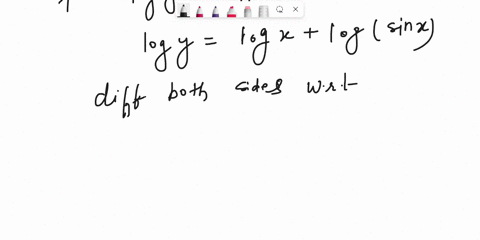 log y = log x + log (sin x)
diff both sides w.r.t